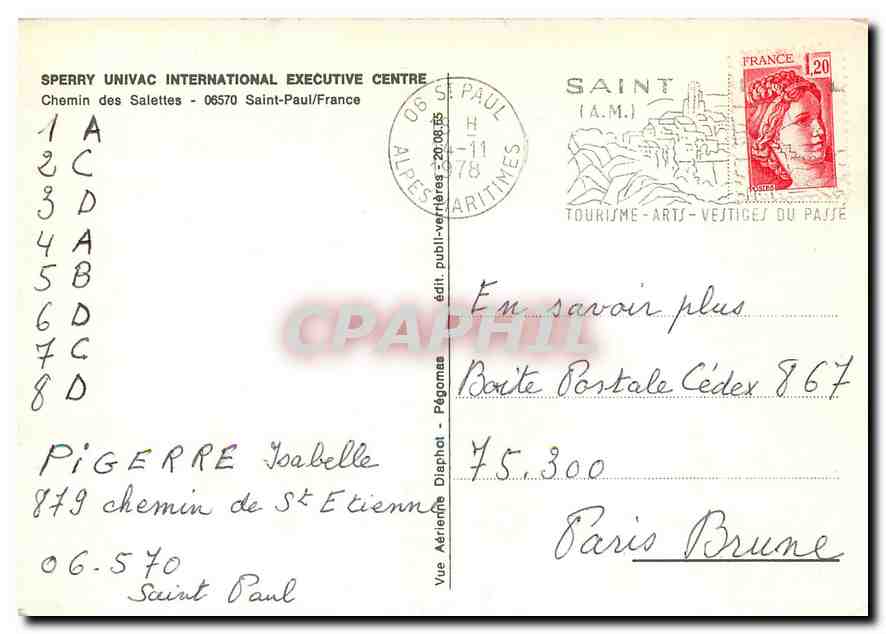 SPERRY UNIVAC INTERNATIONAL EXECUTIVE CENTRE
Chemin des Salettes - 06570 Saint-Paul/France
1 A
2 C
3 D
4 A
5 B
6 D
7 C
8 D
PIGERRE Isabelle
879 chemin de St Etienne
06.570
Saint Paul
Vue Aérienne Diaphot - Pégomas édit. publi-verrières - 20.08.55
06 St PAUL
H
4-11
1978
ALPES MARITIMES
SAINT
(A.M.)
TOURISME-ARTS-VESTIGES DU PASSE
FRANCE
1,20
POSTES
En savoir plus
Boite Postale Cédex 867
75.300
Paris Brune
CPAPHIL